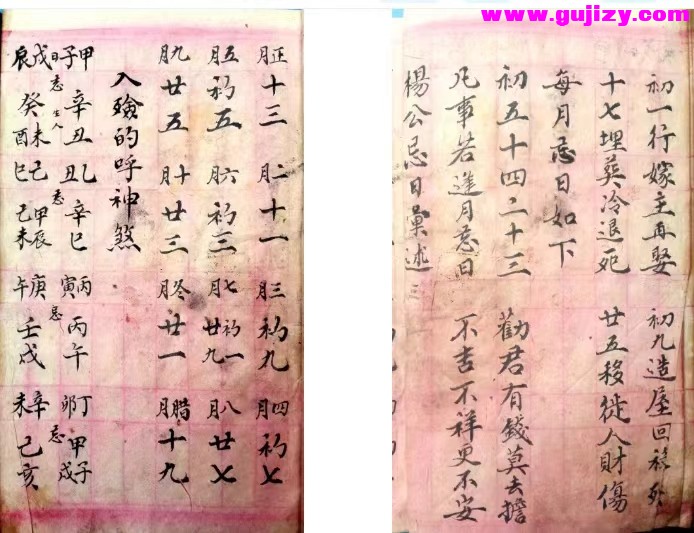 www.gujizy.com
初一行嫁主再娶 初九造屋回
十七埋葬冷退死 廿五移徙人財傷
每月忌日如下
初五十四二十三 勸君有錢莫去擔
凡事若進月忌日 不吉不祥更不安
楊公忌日彙述三
正月十三 二月十一 三月初九 四月初七
五月初五 六月初三 七月初一廿九 八月廿七
九月廿五 十月廿三 冬月廿一 臘月十九
入殮的呼神煞
甲子日忌生人辛丑 乙丑忌辛巳 丙寅忌丙午 丁卯忌甲子戌
戊辰癸未酉 己巳甲辰己未 庚午壬戌 辛未己亥